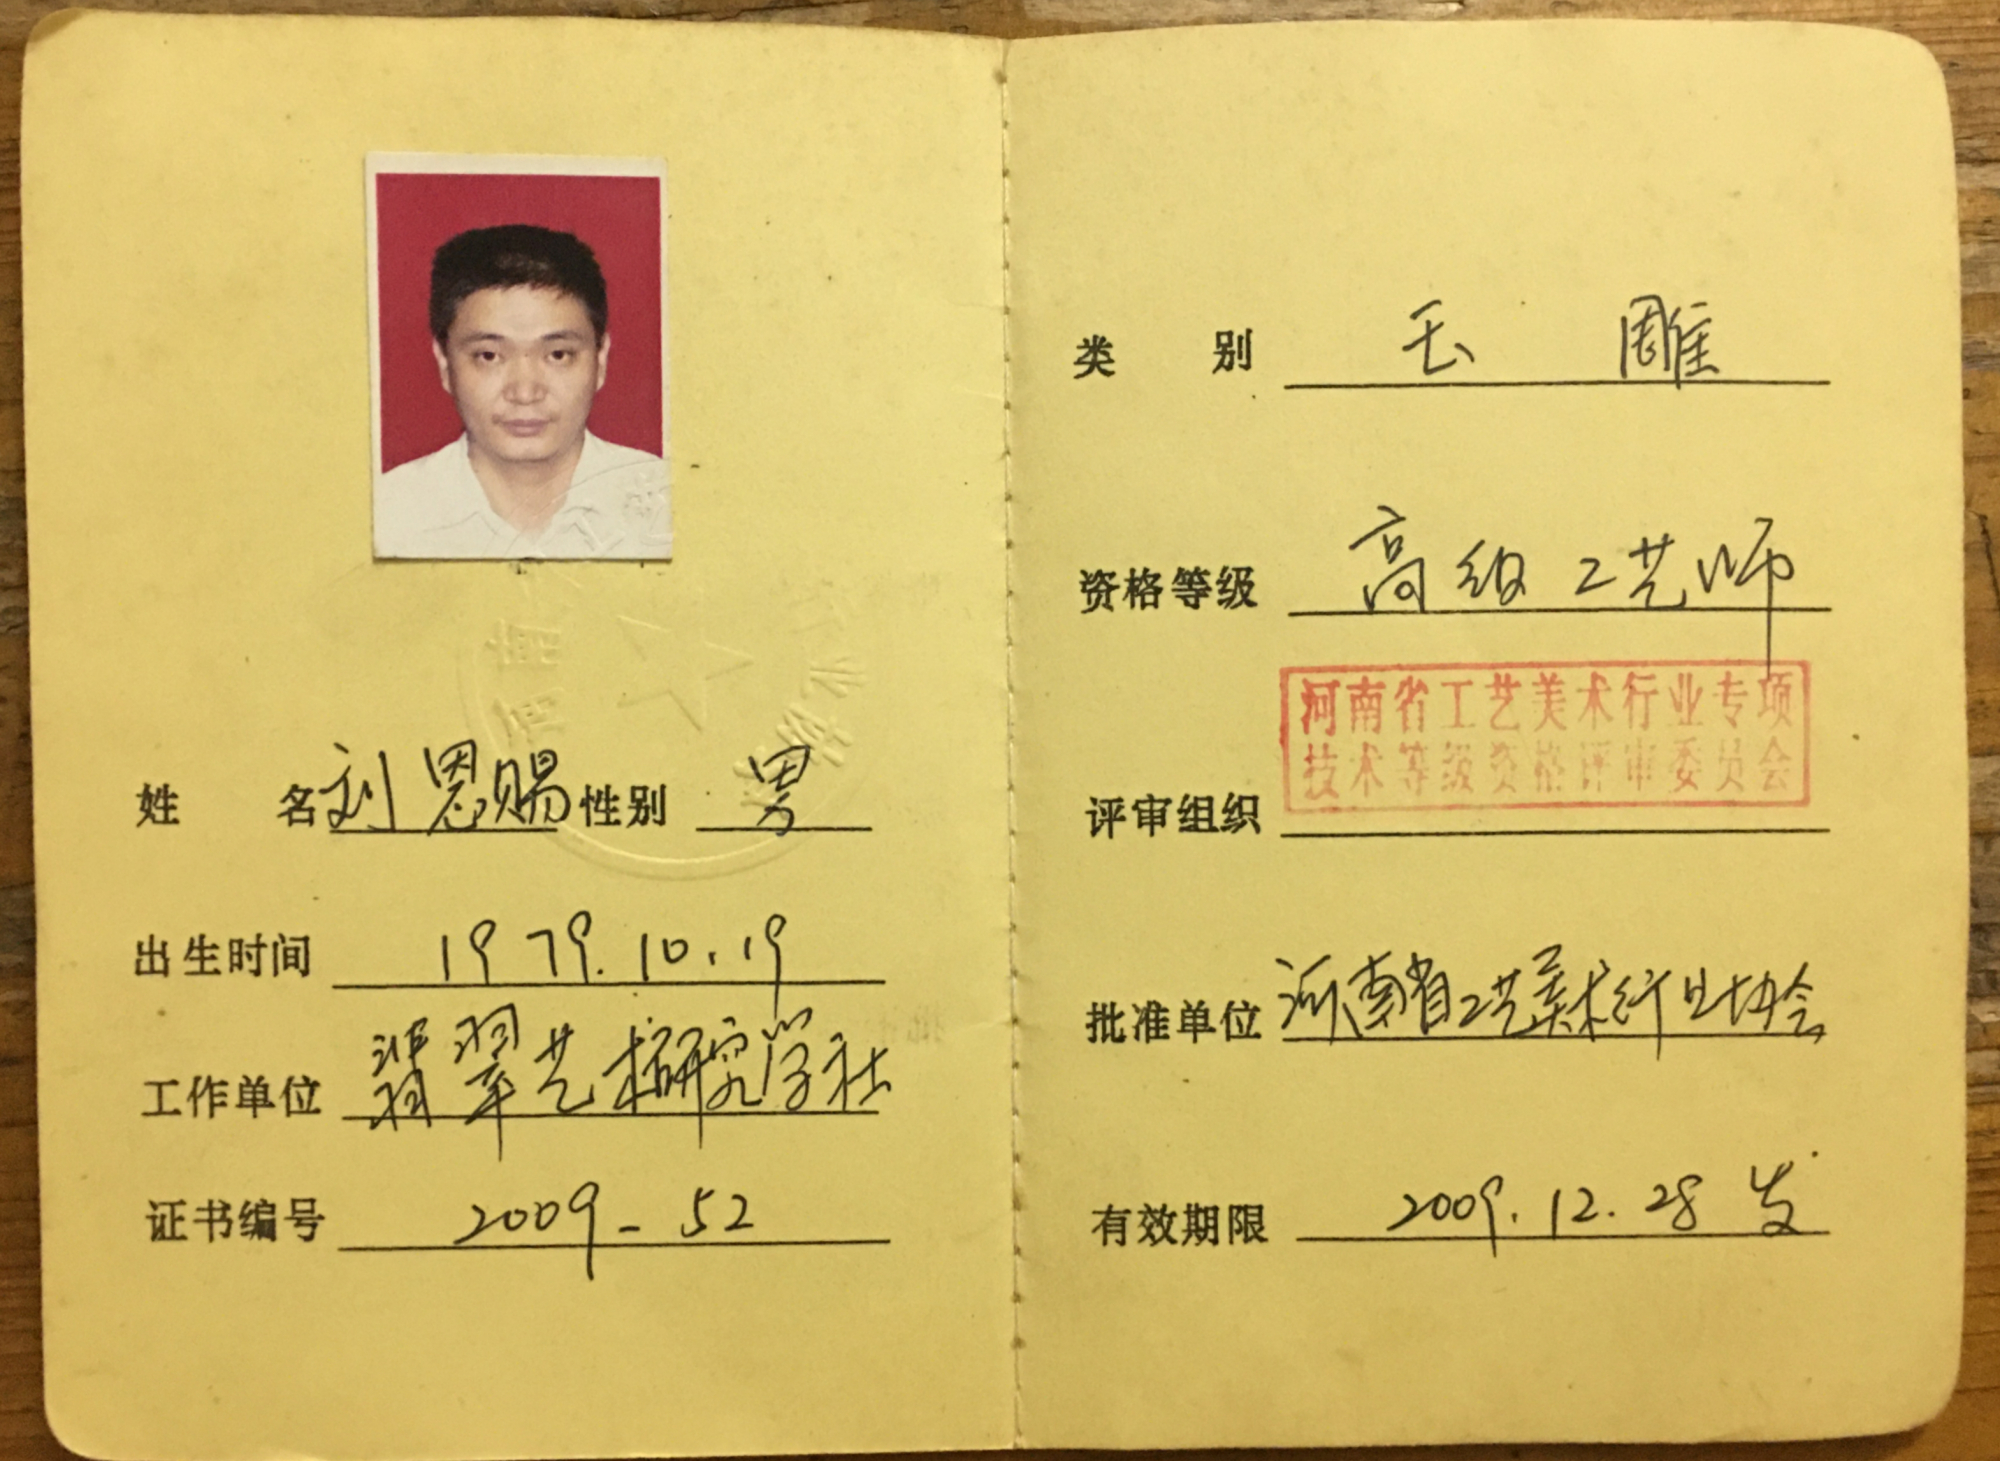 姓 名 刘恩赐 性别 男
出生时间 1979.10.19
工作单位 翡翠艺术研究学社
证书编号 2009-52
类 别 玉 雕
资格等级 高级工艺师
河南省工艺美术行业专项
技术等级资格评审委员会
评审组织
批准单位 河南省工艺美术行业协会
有效期限 2009.12.28 发